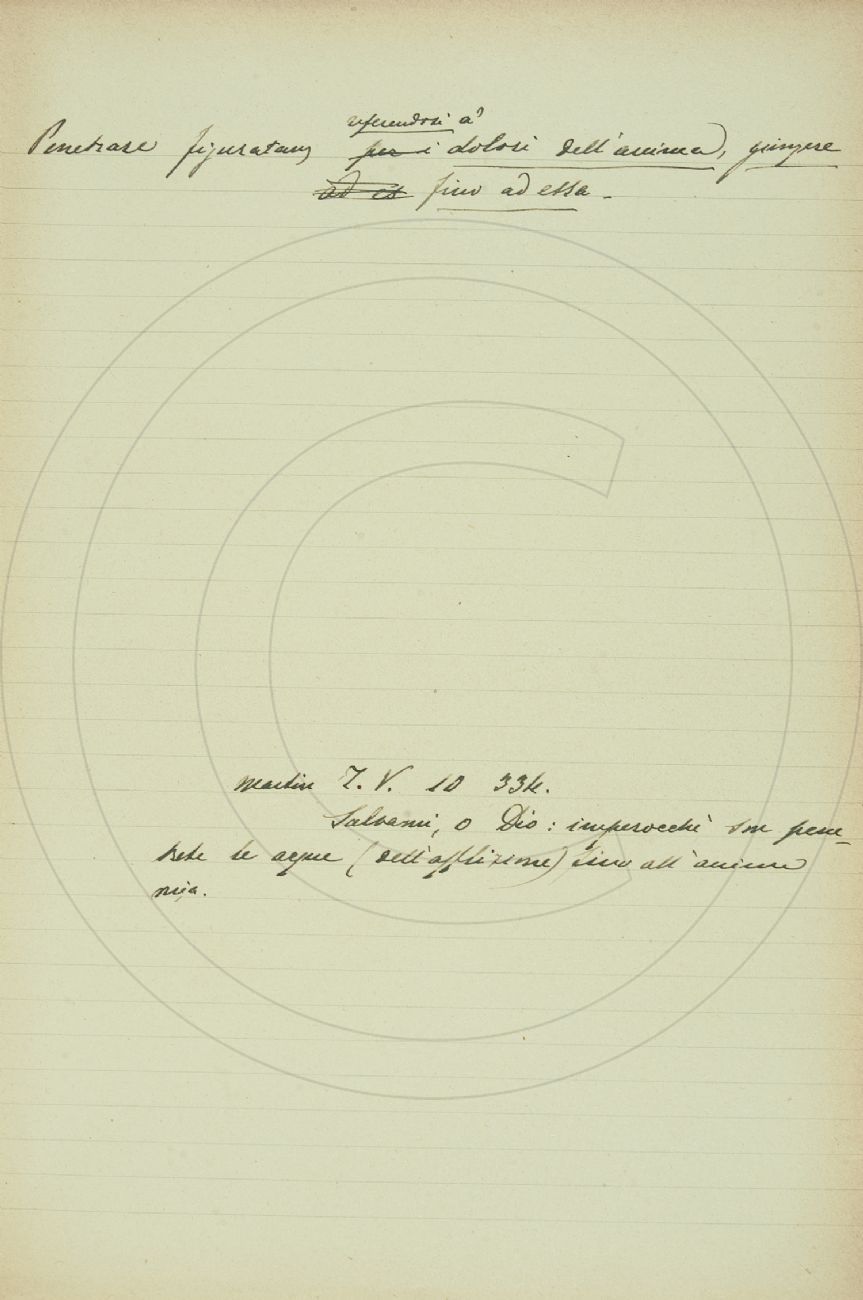 riferendosi a'
Penetrare figuratam per i dolori dell'anima, giungere
ad es fino ad essa.
Martin T. V. 10 334.
Salvami, o Dio: imperocchè son pene-
trate le acque (dell'afflizione) sino all'anima
mia.